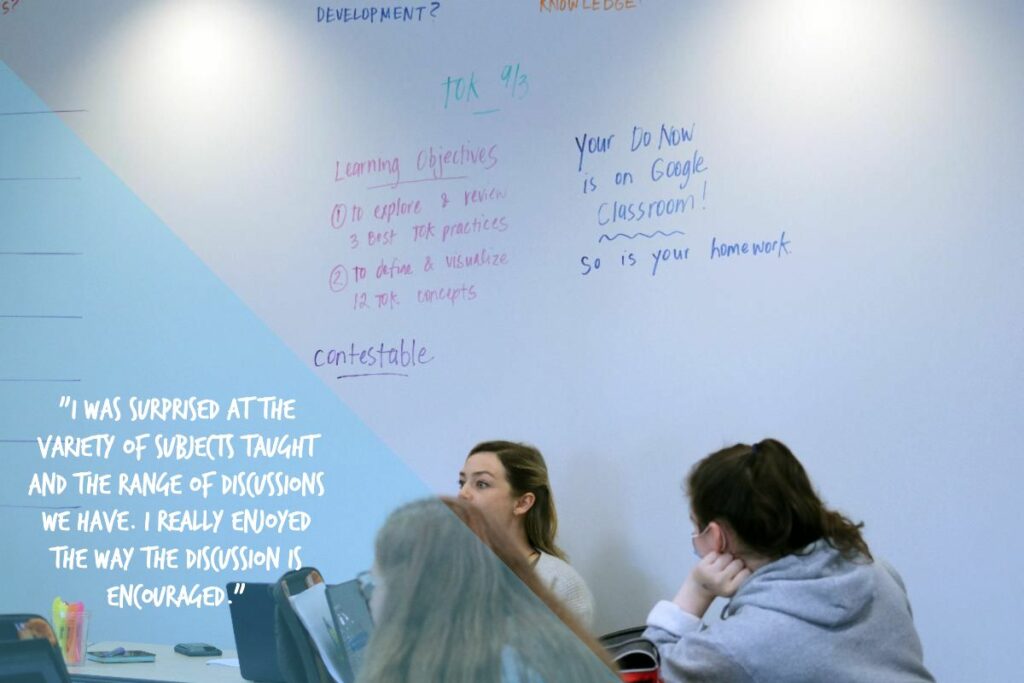 s?
DEVELOPMENT?
KNOWLEDGE?
TOK 9/3
Learning Objectives
① to explore & review
3 Best TOK practices
② to define & visualize
12 TOK concepts
contestable
Your Do Now
is on Google
Classroom!
so is your homework.
"I WAS SURPRISED AT THE
VARIETY OF SUBJECTS TAUGHT
AND THE RANGE OF DISCUSSIONS
WE HAVE. I REALLY ENJOYED
THE WAY THE DISCUSSION IS
ENCOURAGED."